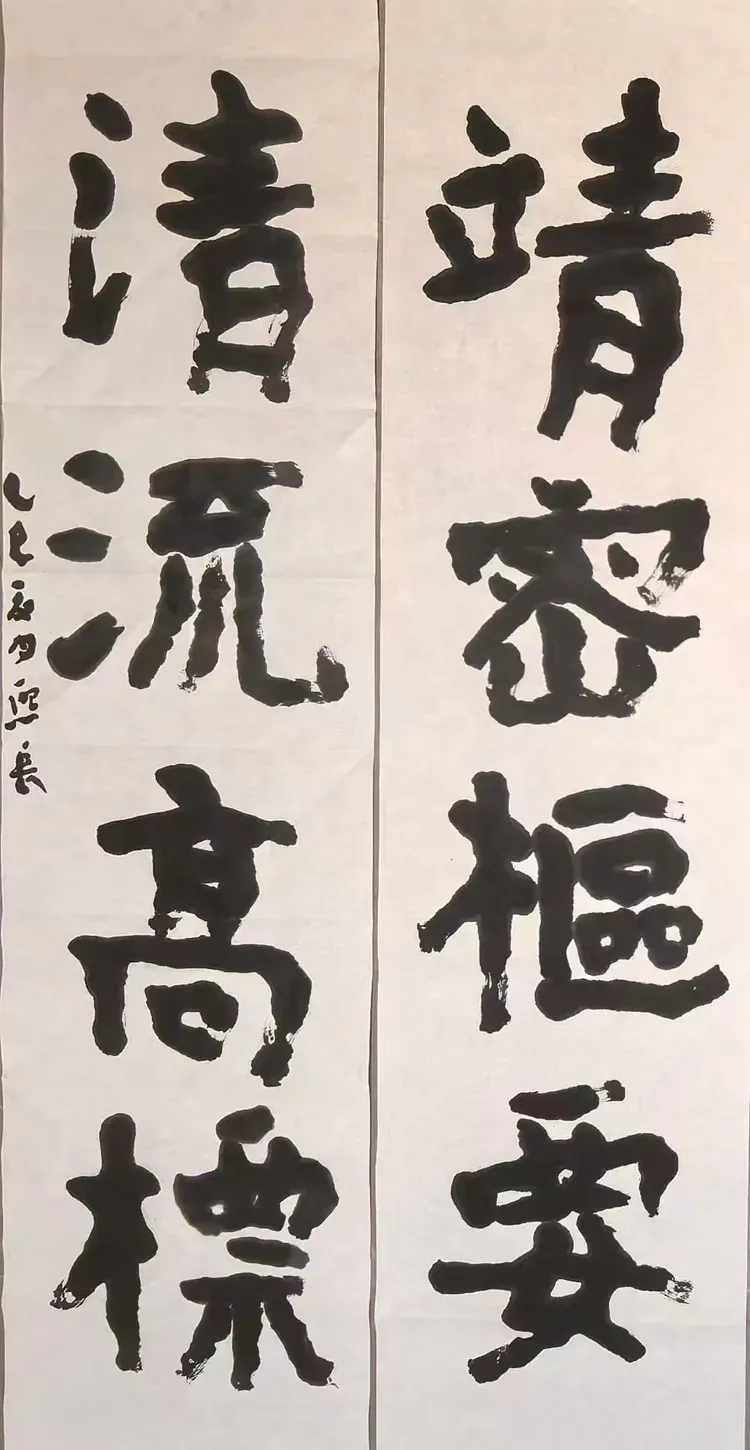 靖密樞要
清流高標
乙巳初夏熙長